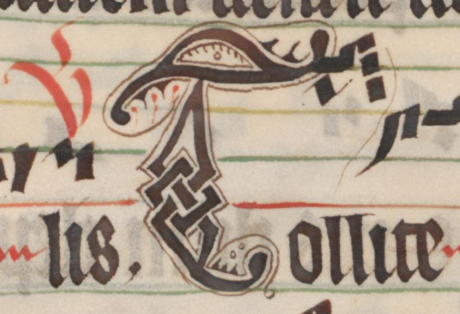 V
lis. Tollite